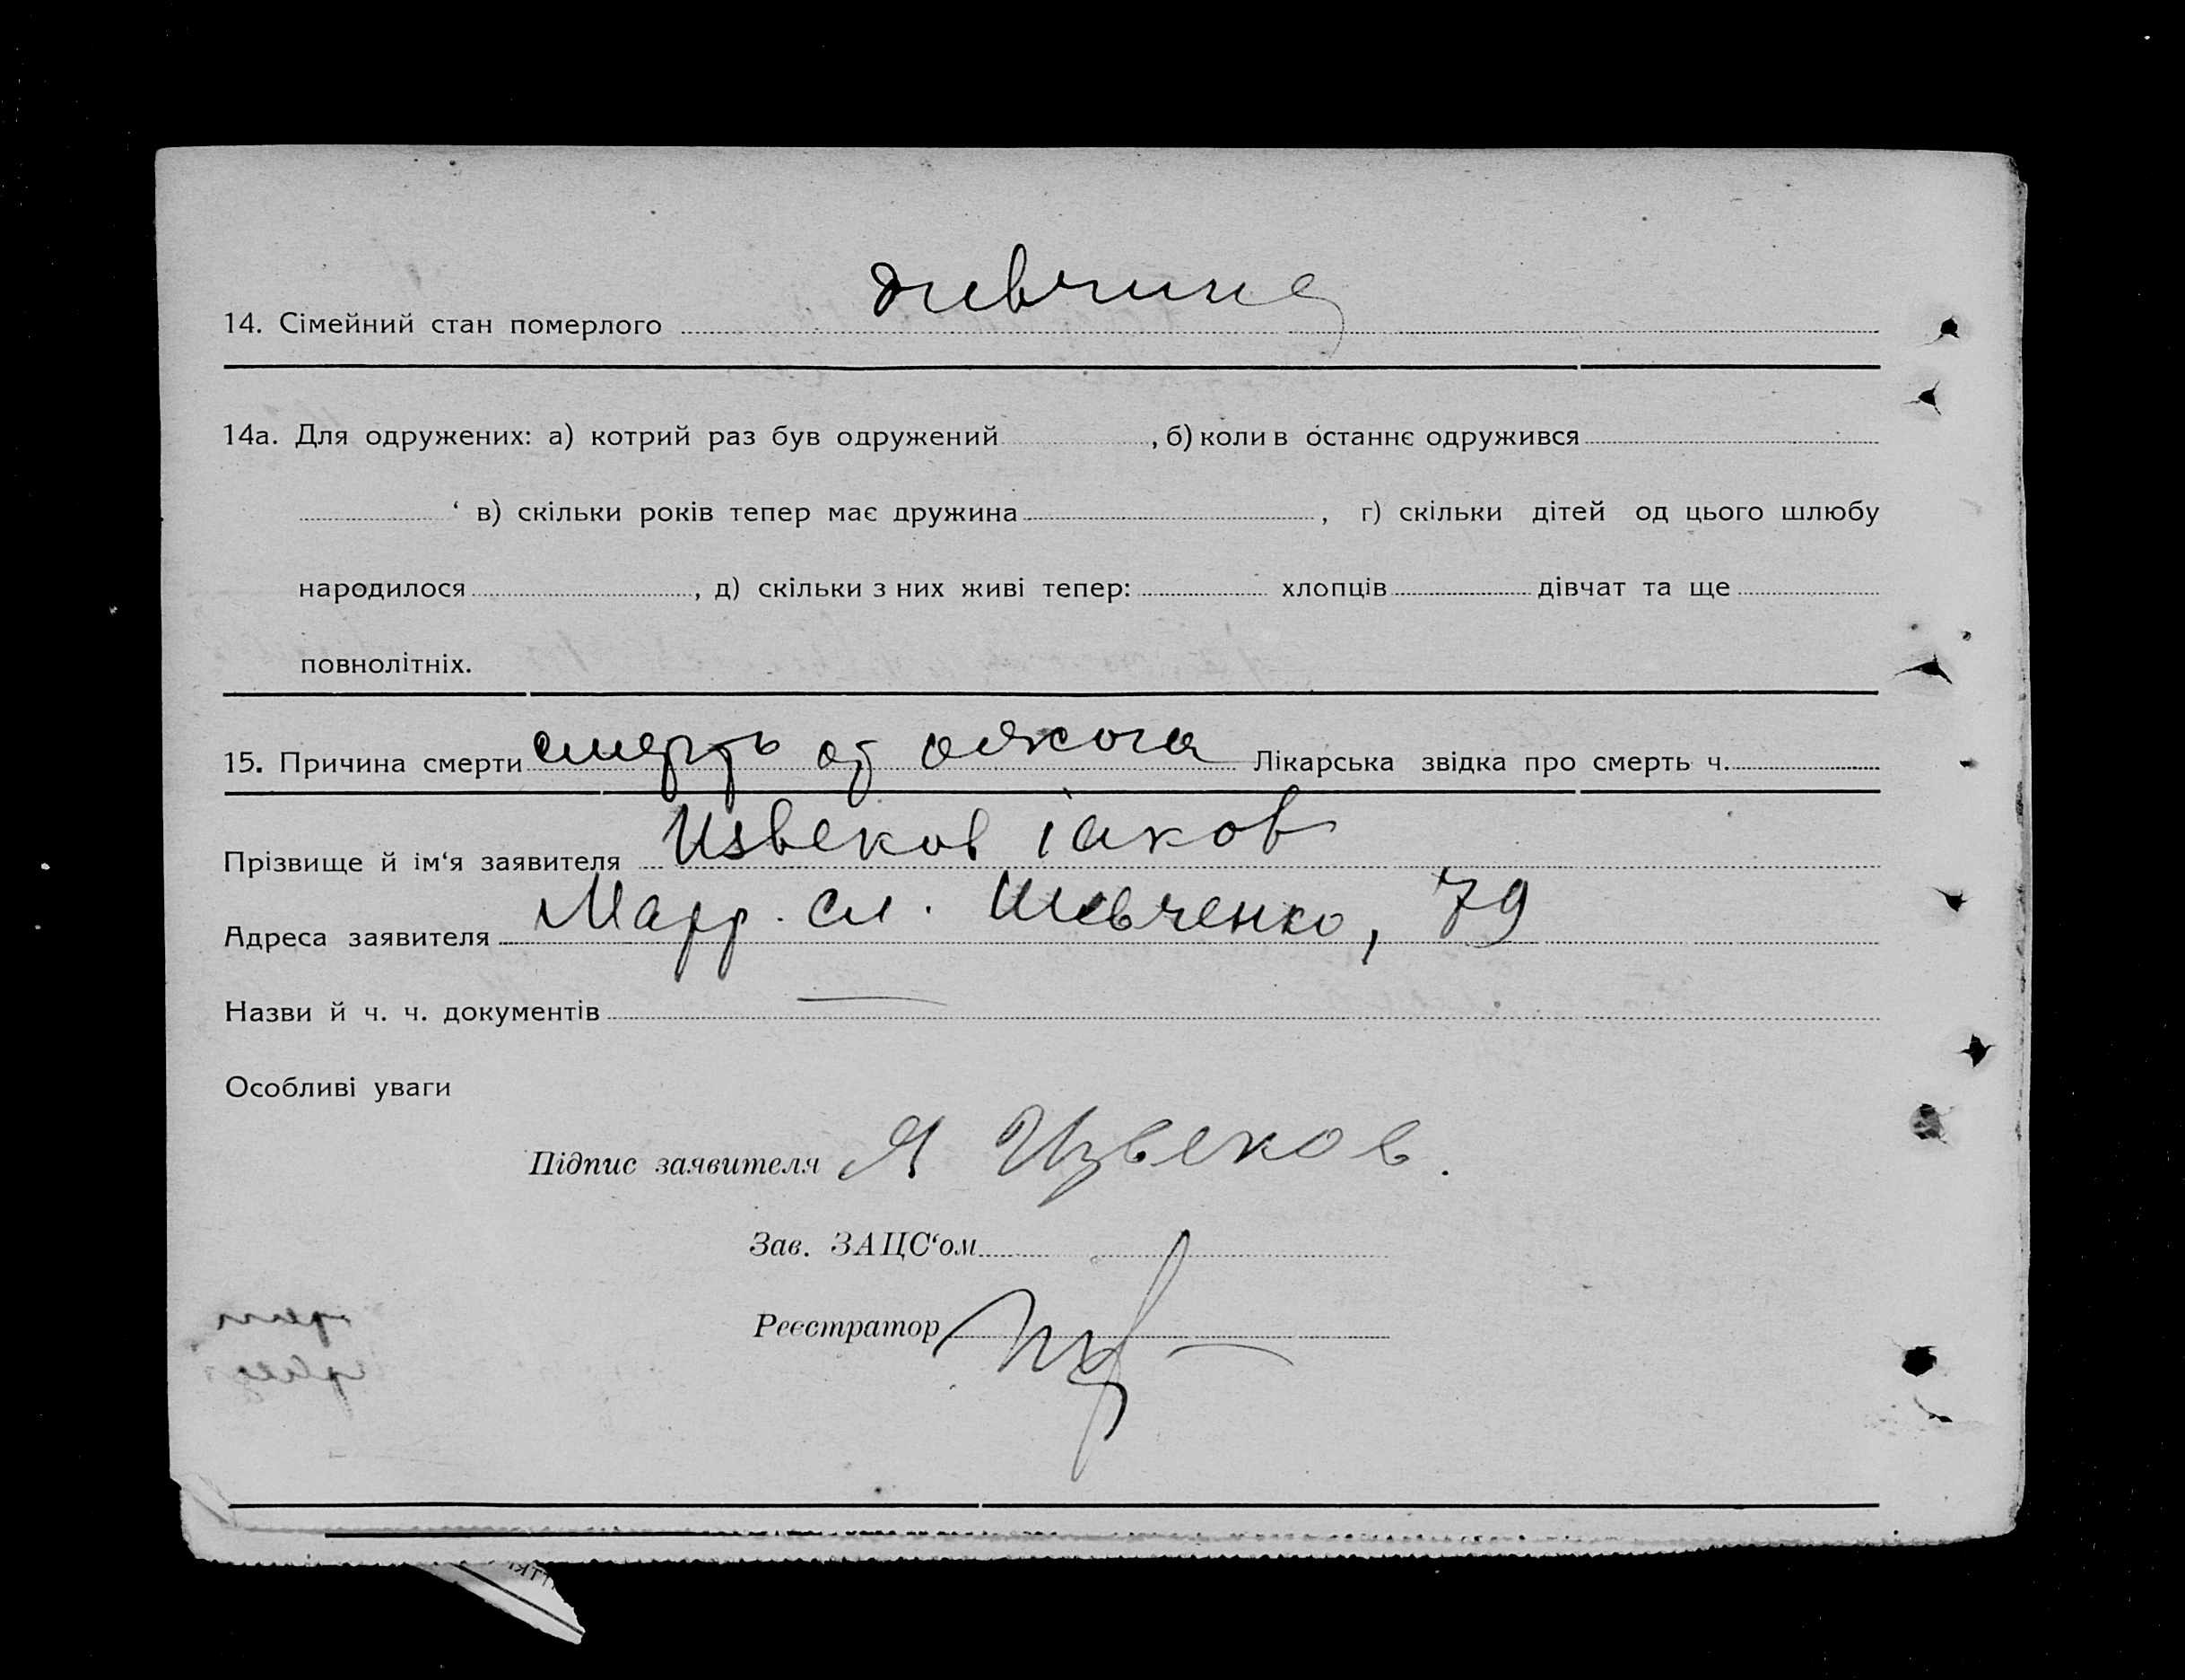 14. Сімейний стан померлого дивчина
14а. Для одружених: а) котрий раз був одружений , б) коли в останнє одружився
‘ в) скільки років тепер має дружина , г) скільки дітей од цього шлюбу
народилося , д) скільки з них живі тепер: хлопців дівчат та ще
повнолітніх.
15. Причина смерти смерть от ожога Лікарська звідка про смерть ч.
Прізвище й ім‘я заявителя Извеков іаков
Адреса заявителя Марр. сл. Шевченко, 79
Назви й ч. ч. документів —
Особливі уваги
Підпис заявителя Я Извеков.
Зав. ЗАЦС‘ом
Реєстратор